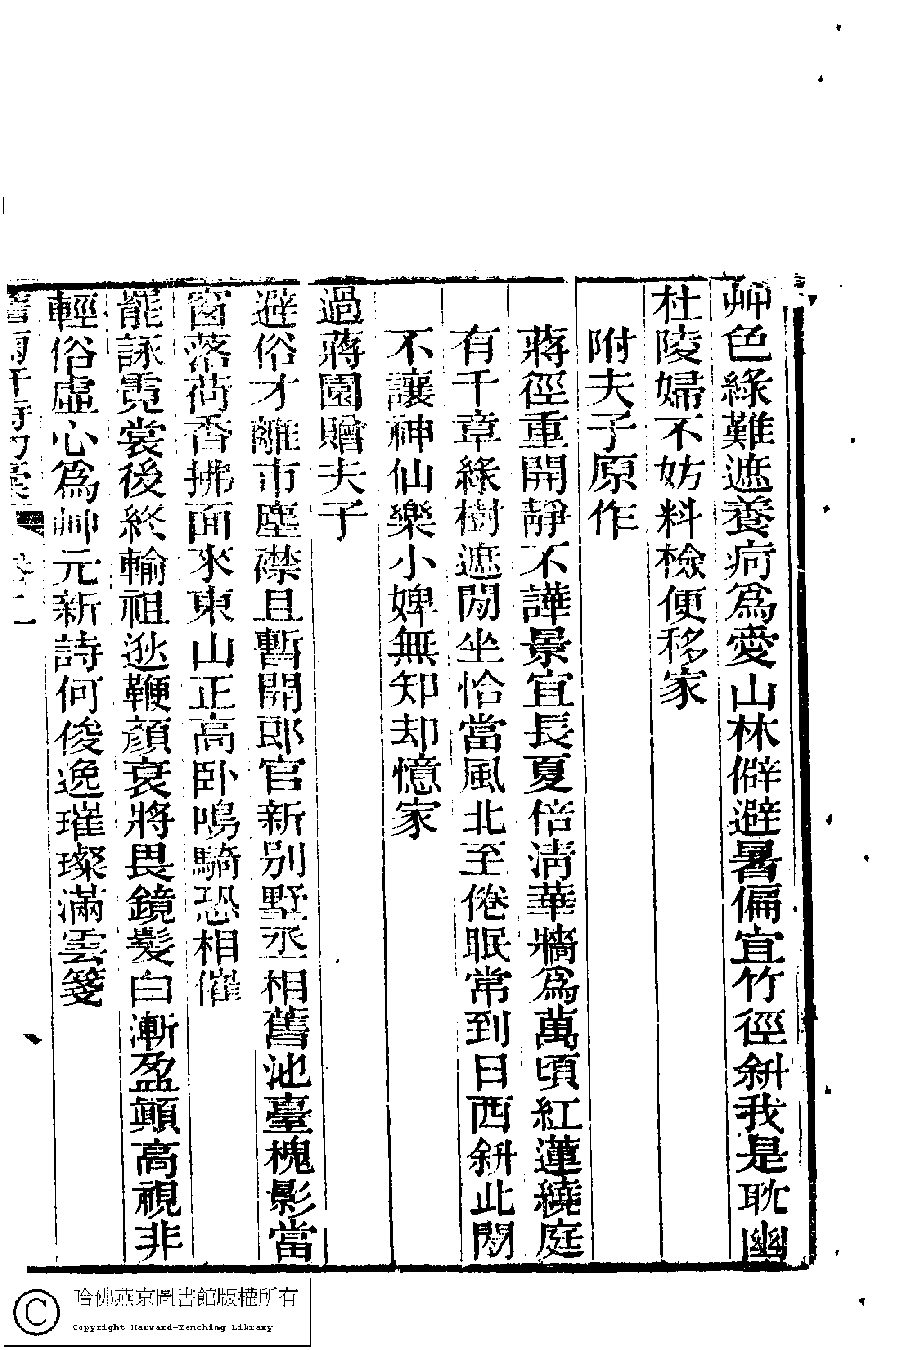 艸色綠難遮養疴爲愛山林僻避暑偏宜竹徑斜我是耽幽
杜陵婦不妨料檢便移家
附夫子原作
蔣徑重開靜不譁景宜長夏倍淸華牆爲萬頃紅蓮繞庭
有千章綠樹遮閒坐恰當風北至倦眠常到日西斜此閒
不讓神仙樂小婢無知却憶家
過蔣園贈夫子
避俗才離市塵襟且暫開郎官新別墅丞相舊池臺槐影當
窗落荷香拂面來東山正高卧鳴騶恐相催
罷詠霓裳後終輸祖逖鞭顏衰將畏鏡髮白漸盈顚高視非
輕俗虛心爲艸元新詩何俊逸璀璨滿雲箋
卷二
哈佛燕京圖書館版權所有
Copyright Harvard-Yenching Library